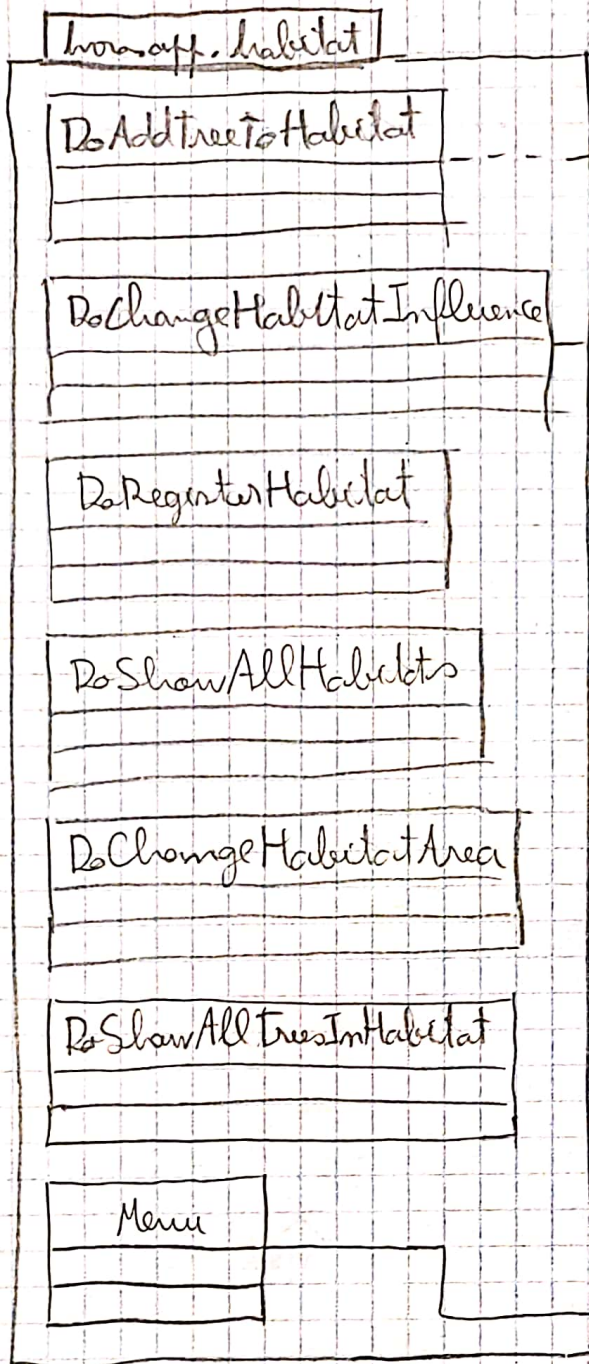 hva.app.habitat
DoAddTreeToHabitat
DoChangeHabitatInfluence
DoRegisterHabitat
DoShowAllHabitats
DoChangeHabitatArea
DoShowAllTreesInHabitat
Menu